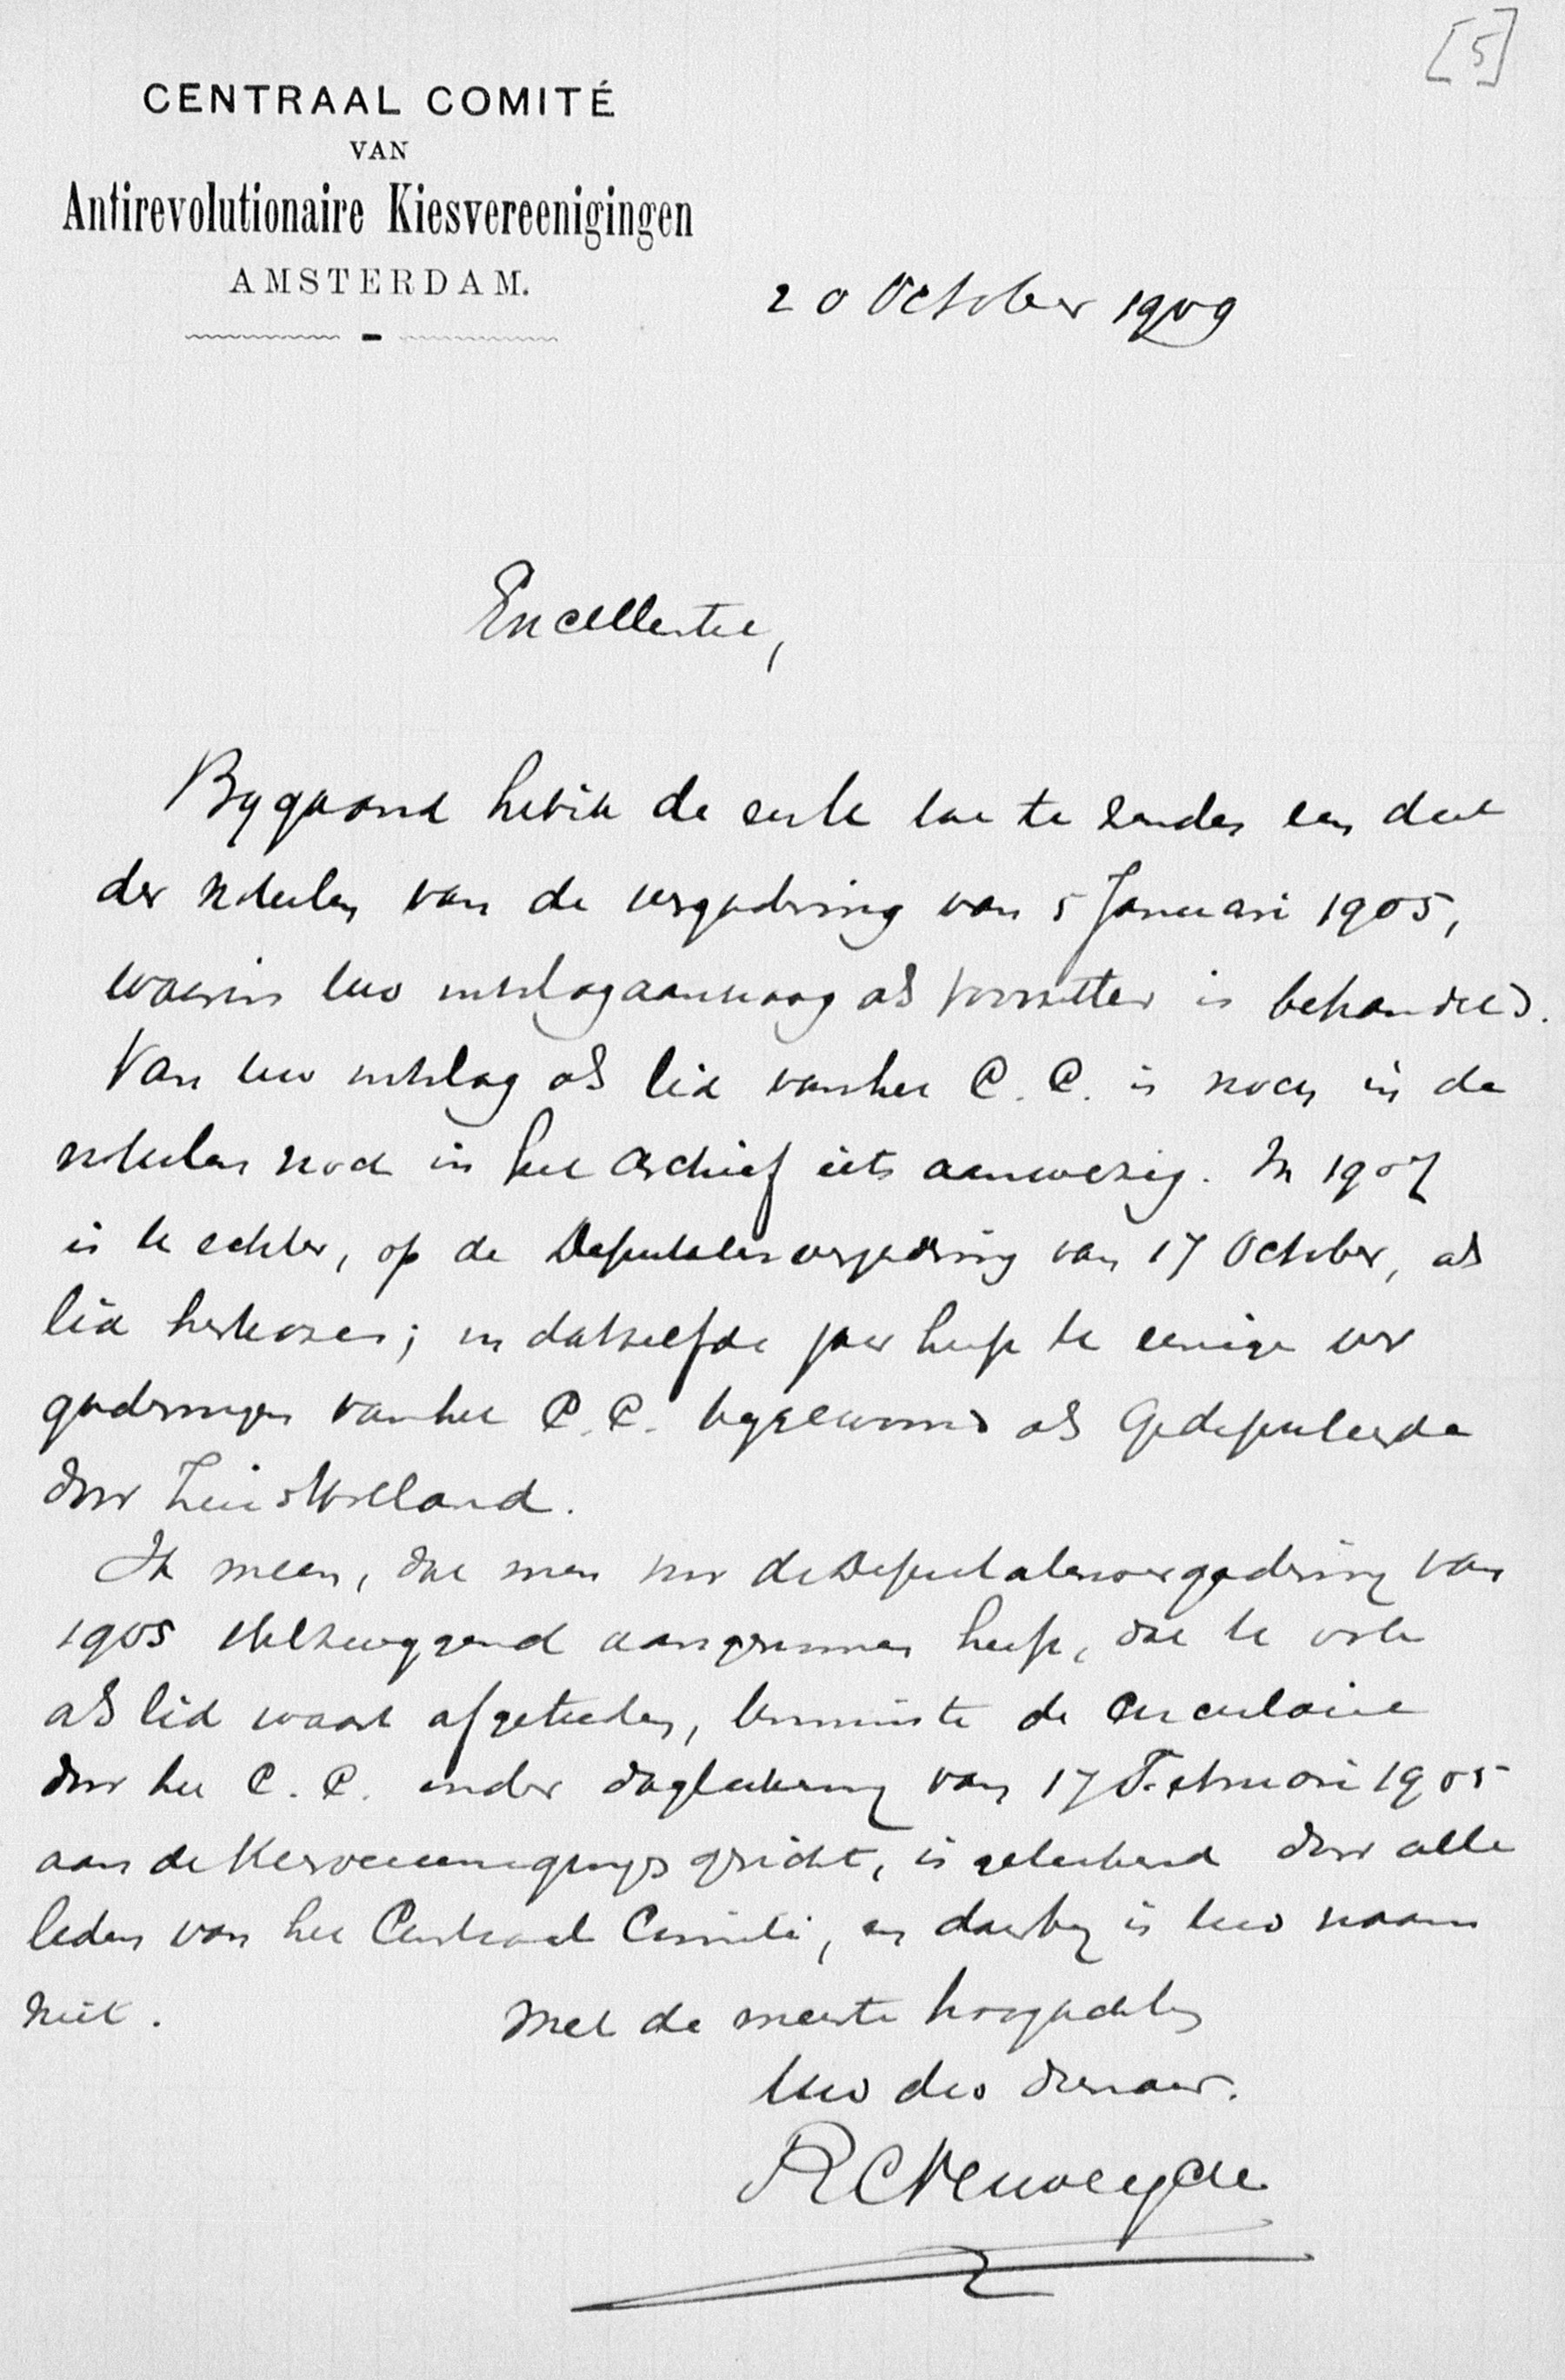 [5]
CENTRAAL COMITÉ
VAN
Antirevolutionaire Kiesvereenigingen
AMSTERDAM.
20 October 1909
Excellentie,
Bygaand heb ik de eer U toe te zenden een deel
der notulen van de vergadering van 5 Januari 1905,
waarin Uw ontslagaanvraag als Voorzitter is behandeld.
Van Uw ontslag als lid van het C. C. is noch in de
notulen noch in het archief iets aanwezig. In 1907
is U echter, op de Deputatenvergadering van 17 October, als
lid herkozen; in datzelfde jaar heeft U eenige ver
gaderingen van het C. C. bygewoond als Gedeputeerde
voor Zuid Holland.
Ik meen, dat men voor de Deputatenvergadering van
1905 stilzwygend aangenomen heeft, dat U ook
als lid waart afgetreden, tenminste de circulaire
door het C. C. onder dagteekening van 17 Februari 1905
aan de Kiesvereenigingen gericht, is geteekend door alle
leden van het Centraal Comité, en daarby is Uw naam
niet.
Met de meeste hoogachting
Uw dw dienaar.
R C Verweyde